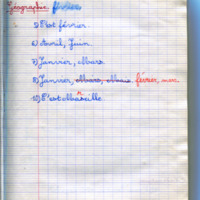 Géographie février
5) C'est février.
6) Avril, Juin.
7) Janvier, Mars.
8) Janvier, février, mars.
10) C'est Marseille